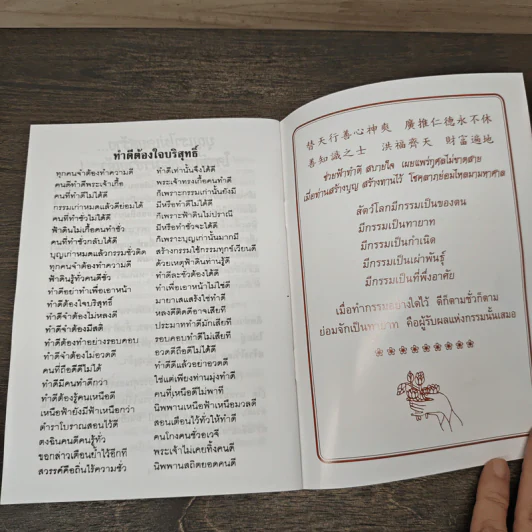 ทำดีต้องใจบริสุทธิ์
ทุกคนจำต้องทำความดี ทำดีเท่านั้นจึงได้ดี
คนดีทำดีพระเจ้าเกื้อ พระเจ้าทรงเกื้อคนทำดี
คนที่ทำดีไม่ได้ดี ก็เพราะกรรมเก่านั้นยังมี
กรรมเก่าหมดแล้วดีย่อมได้ มีหรือทำดีไม่ได้ดี
คนที่ทำชั่วไม่ได้ดี ก็เพราะฟ้าดินไม่ปราณี
ฟ้าดินไม่เกื้อคนทำชั่ว มีหรือทำชั่วจะได้ดี
คนที่ทำชั่วกลับได้ดี ก็เพราะบุญเก่านั้นมากมี
บุญเก่าหมดแล้วกรรมชั่วติด สร้างกรรมใช้กรรมทุกข์เวียนดี
ทุกคนจำต้องทำความดี ด้วยเหตุฟ้าดินท่านรู้ดี
ฟ้าดินรู้ทั่วคนดีชั่ว ทำดีละชั่วต้องได้ดี
ทำดีอย่าทำเพื่อเอาหน้า ทำเพื่อเอาหน้าไม่ใช่ดี
ทำดีต้องใจบริสุทธิ์ มายาเสแสร้งใช่ทำดี
ทำดีจำต้องไม่หลงดี หลงดีติดดีอาจเสียที
ทำดีจำต้องมีสติ ประมาททำดีมักเสียที
ทำดีต้องทำอย่างรอบคอบ รอบคอบทำดีไม่เสียที
ทำดีจำต้องไม่อวดดี อวดดีถือดีไม่ได้ดี
คนที่ถือดีดีไม่ได้ ทำดีดีแล้วอย่าอวดดี
ทำดีมีคนทำดีกว่า ใช่แต่เพียงท่านมุ่งทำดี
ทำดีต้องรู้คนเหนือดี คนที่เหนือดีไม่พาที
เหนือฟ้ายังมีฟ้าเหนือกว่า นิพพานเหนือฟ้าเหนือมวลดี
ตำราโบราณสอนไว้ดี สอนเตือนไว้ทั่วให้ทำดี
ตงฉินคนดีคนรู้ทั่ว คนโกงคนชั่วอเวจี
ขอกล่าวเตือนย้ำไว้อีกที พระเจ้าไม่เคยทิ้งคนดี
สวรรค์คือถิ่นไร้ความชั่ว นิพพานสถิตยอดคนดี
替天行善心神爽 廣推仁德永不休
善知識之士 洪福齊天 財富遍地
ช่วยฟ้าทำดี สบายใจ เผยแพร่กุศลไม่ขาดสาย
เมื่อท่านสร้างบุญ สร้างทานไว้ โชคลาภย่อมไหลมามหาศาล
สัตว์โลกมีกรรมเป็นของตน
มีกรรมเป็นทายาท
มีกรรมเป็นกำเนิด
มีกรรมเป็นเผ่าพันธุ์
มีกรรมเป็นที่พึ่งอาศัย
เมื่อทำกรรมอย่างใดไว้ ดีก็ตามชั่วก็ตาม
ย่อมจักเป็นทายาท คือผู้รับผลแห่งกรรมนั้นเสมอ